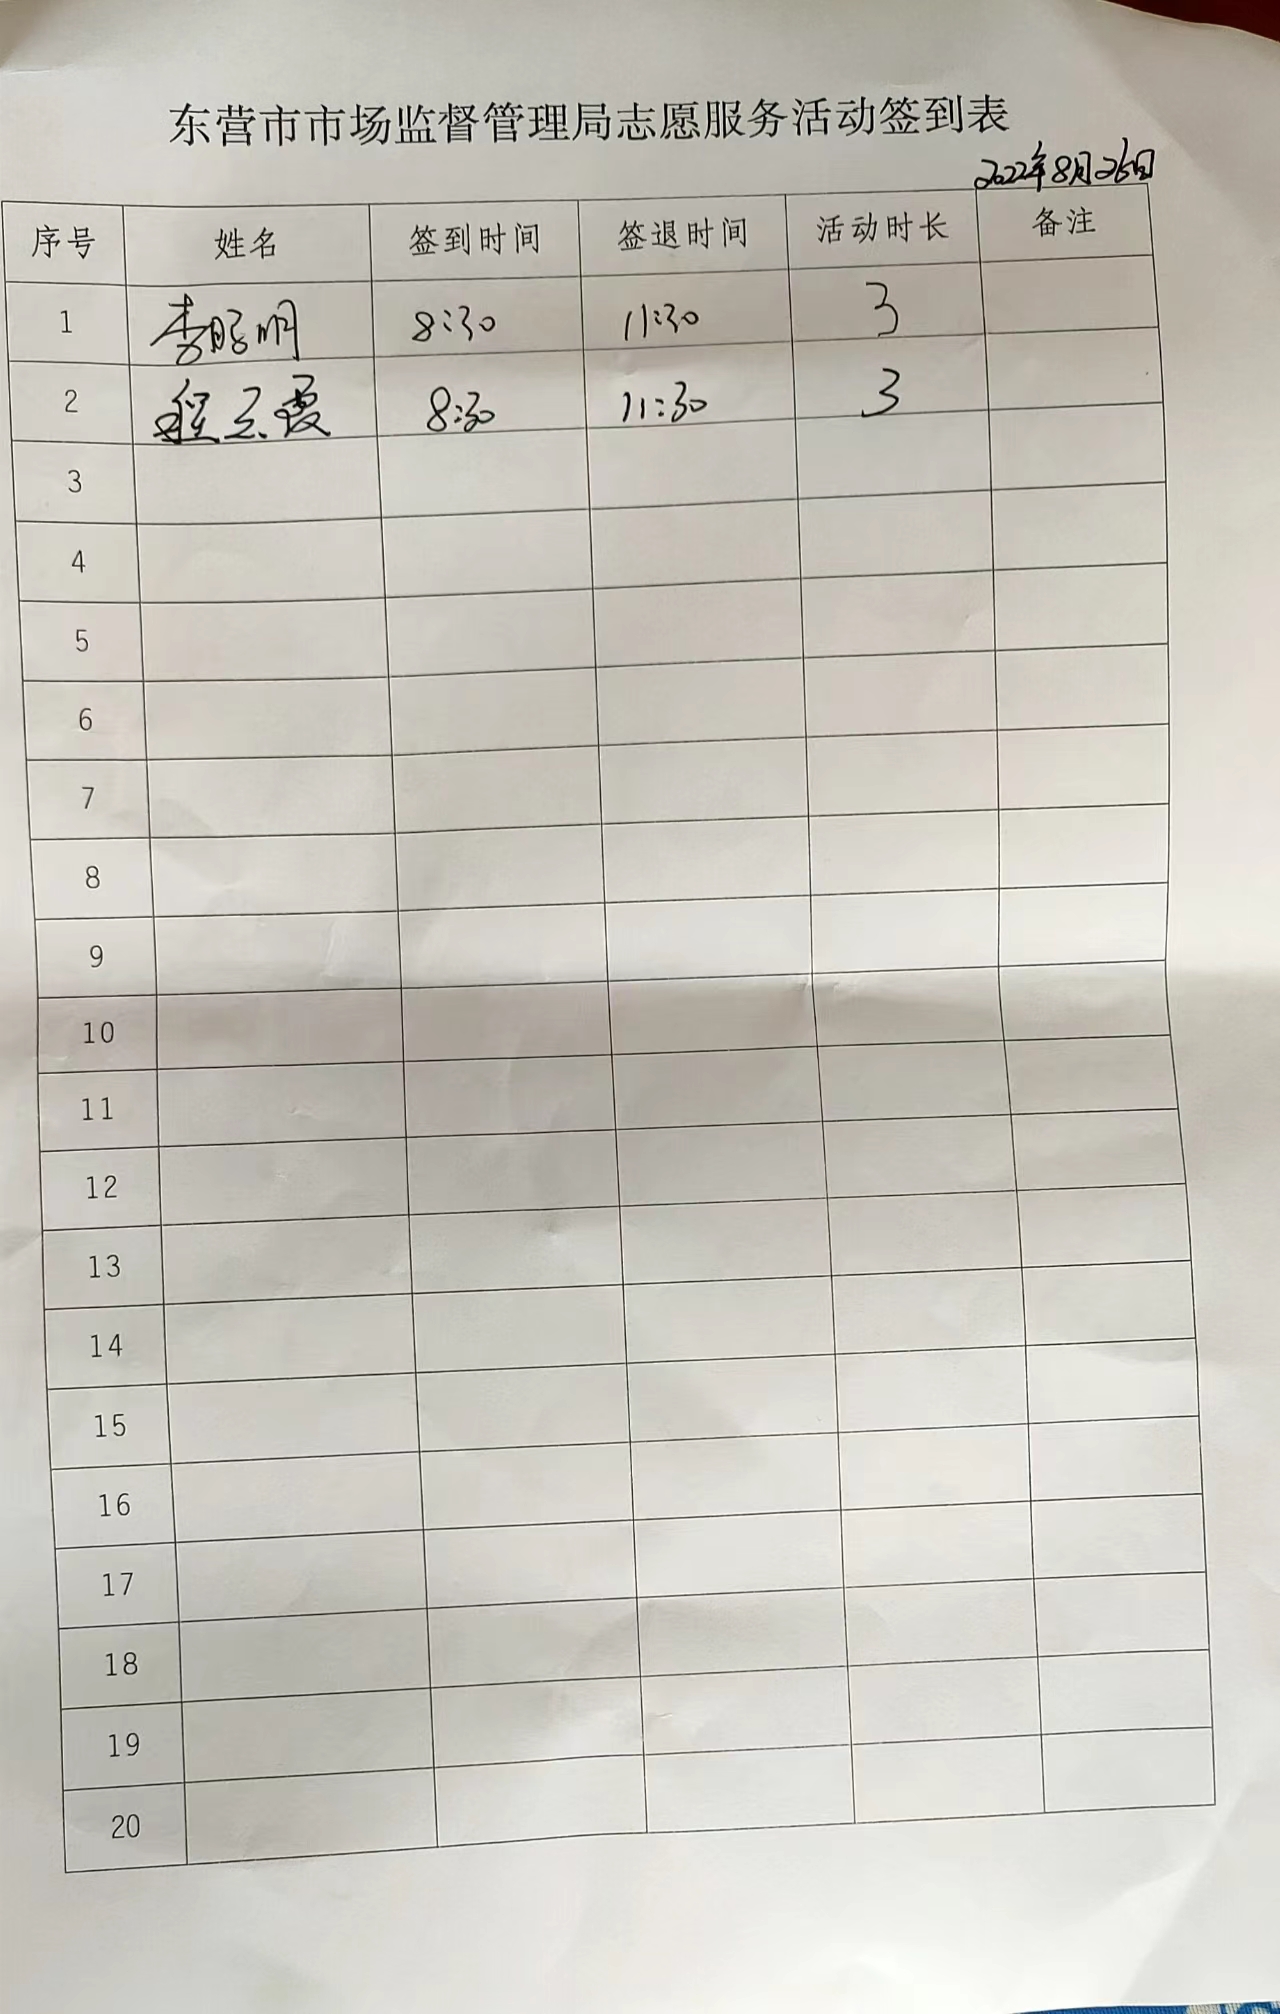 东营市市场监督管理局志愿服务活动签到表
2022年8月26日
序号 姓名 签到时间 签退时间 活动时长 备注
1 李 明 8:30 11:30 3
2 程云霞 8:30 11:30 3
3
4
5
6
7
8
9
10
11
12
13
14
15
16
17
18
19
20